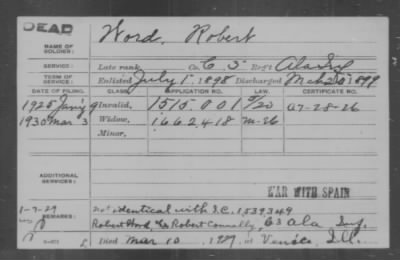 DEAD
Word, Robert
NAME OF SOLDIER:
SERVICE: Late rank, Co. C 5 Reg't Ala Inf
TERM OF SERVICE: Enlisted July 1, 1898 Discharged Mch 20 1899
DATE OF FILING. CLASS. APPLICATION NO. LAW. CERTIFICATE NO.
1925 Invalid, 1515 001
1930 Mar 3 Widow, 1662418
Minor,
ADDITIONAL SERVICES:
WAR WITH SPAIN
1-7-29 not identical with S.C. 1539349
REMARKS: Robert Word, Robert Connally, Ala Inf.
Died Mar 10, at Venice, Ill.